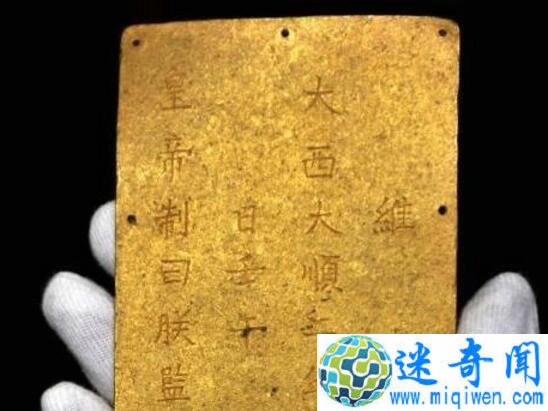 維
大西大順二年
日壬午
皇帝制曰朕監
迷奇闻
www.miqiwen.com